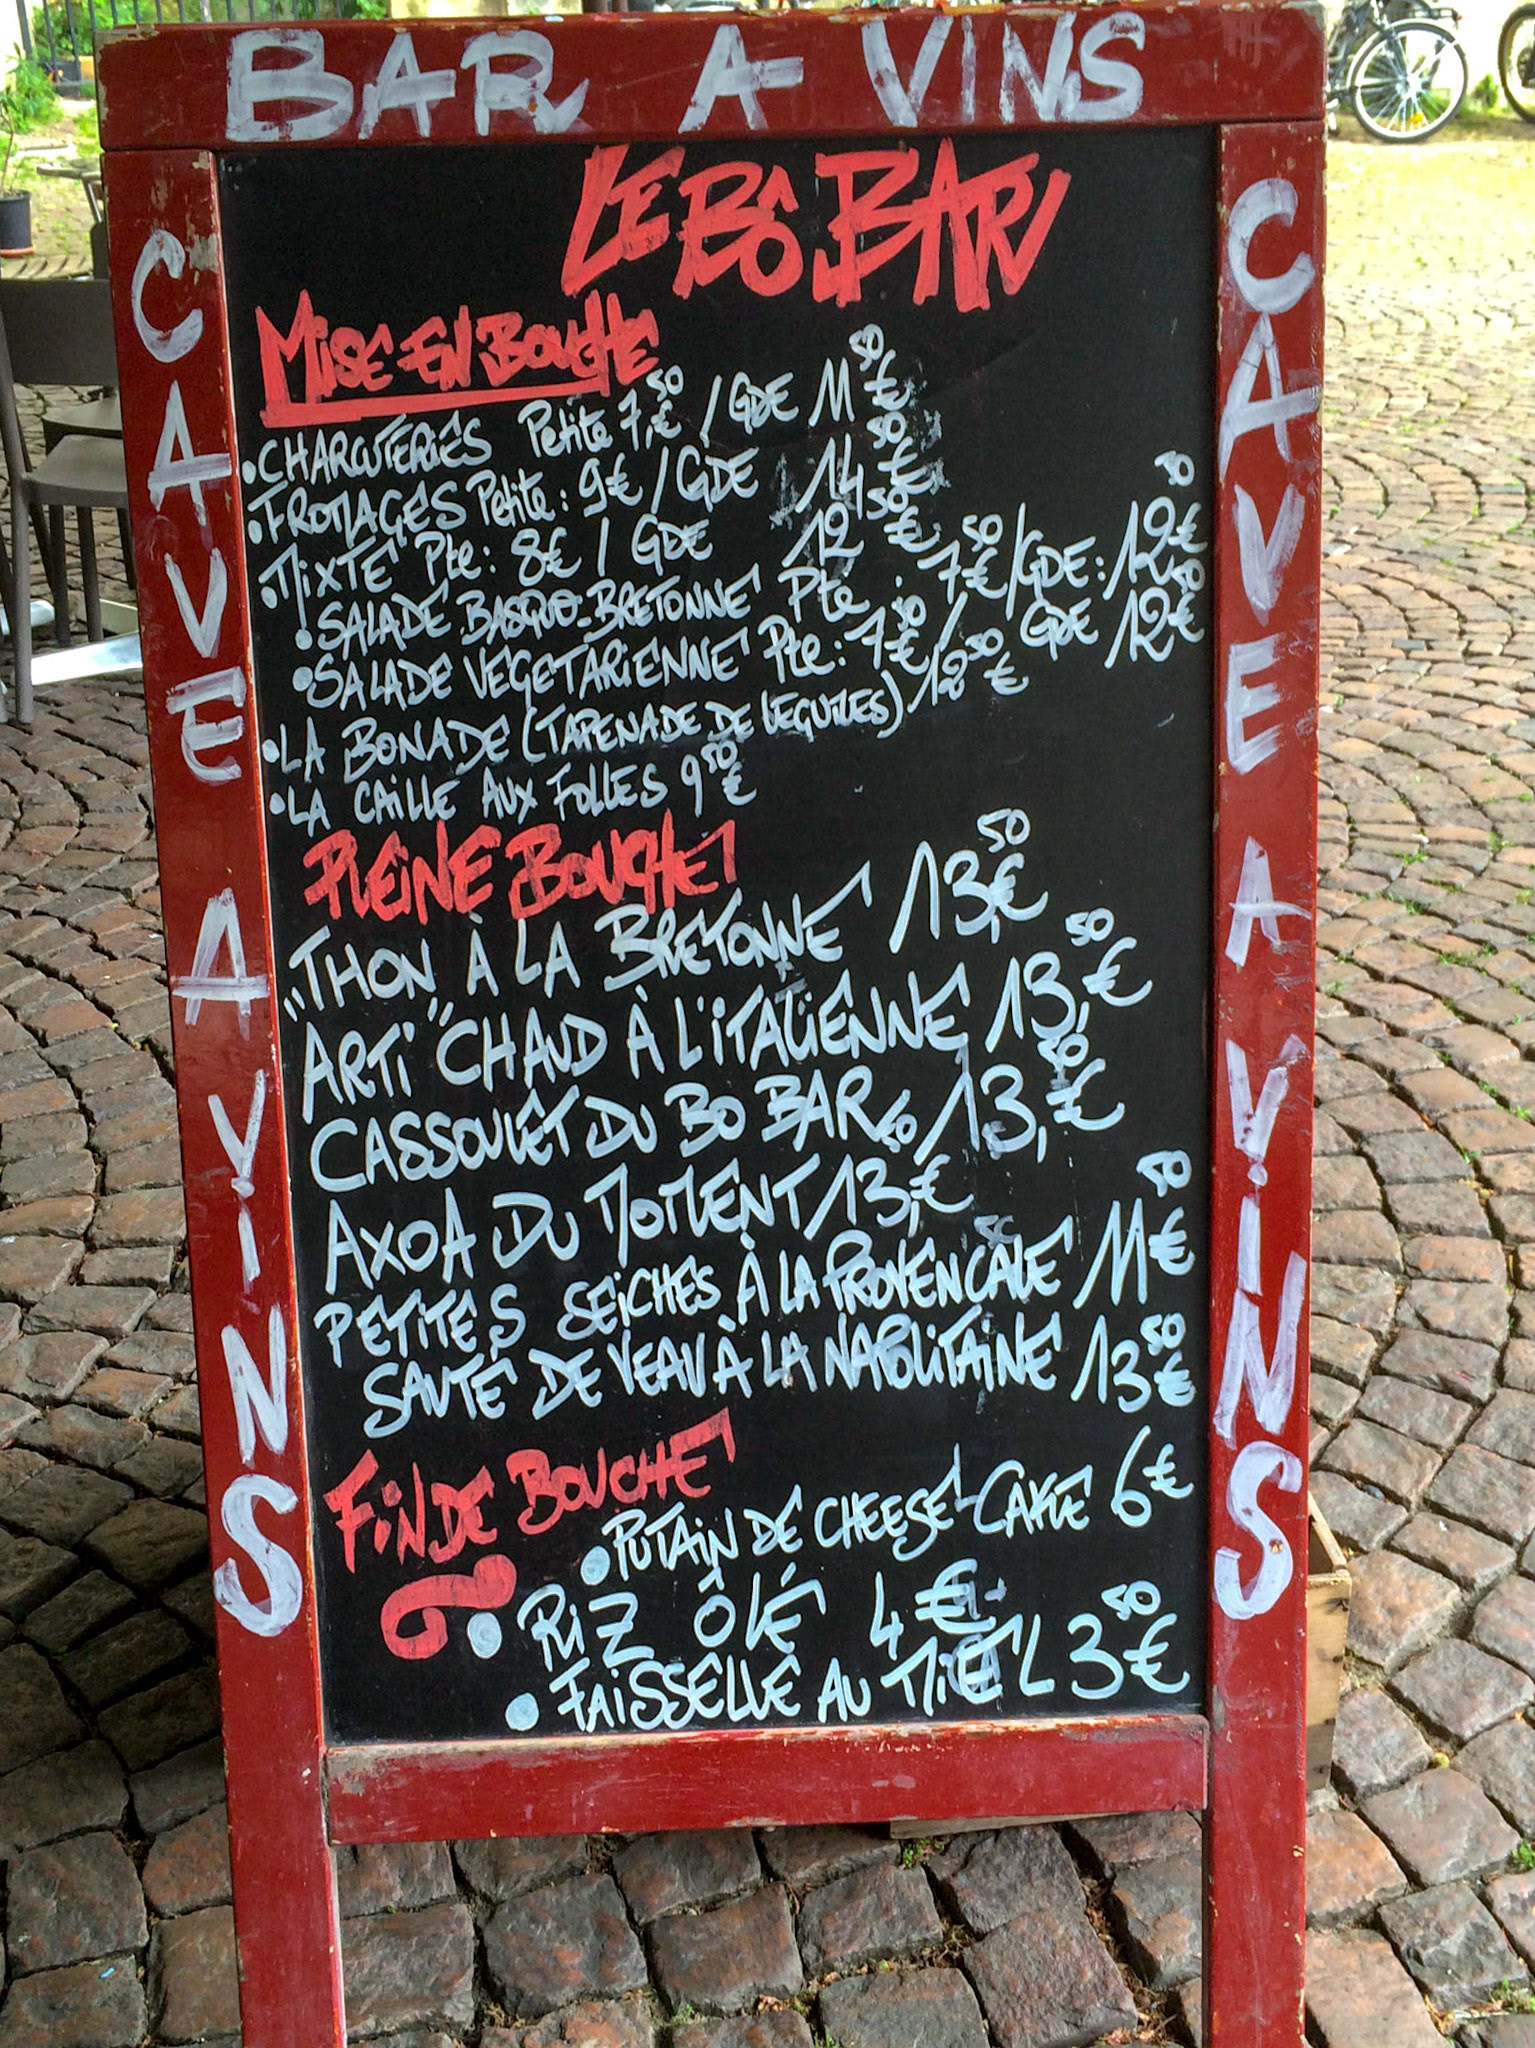 BAR A VINS
CAVE A VINS
CAVE A VINS
LE BÔ BAR
MISE EN BOUCHE
• CHARCUTERIES Petite 7,50€ / GDE 11,50€
• FROMAGES Petite: 9€ / GDE 14,50€
• MIXTE Pte: 8€ / GDE 12,50€
• SALADE BASQUO-BRETONNE Pte: 7,50€ / GDE: 12,50€
• SALADE VEGETARIENNE Pte: 7,50€ / GDE 12,50€
• LA BONADE (TAPENADE DE LEGUMES) 12,50€
• LA CAILLE AUX FOLLES 9,50€
PLEINE BOUCHE
"THON" À LA BRETONNE 13,50€
ARTI "CHAUD À L'ITALIENNE 13,50€
CASSOULET DU BO BAR 13,50€
AXOA DU MOMENT 13,50€
PETITES SEICHES À LA PROVENCALE 11,50€
SAUTÉ DE VEAU À LA NAPOLITAINE 13,50€
FIN DE BOUCHE
• PUTAIN DE CHEESE CAKE 6€
• RIZ ÔLÉ 4€
• FAISSELLE AU MIEL 3,50€